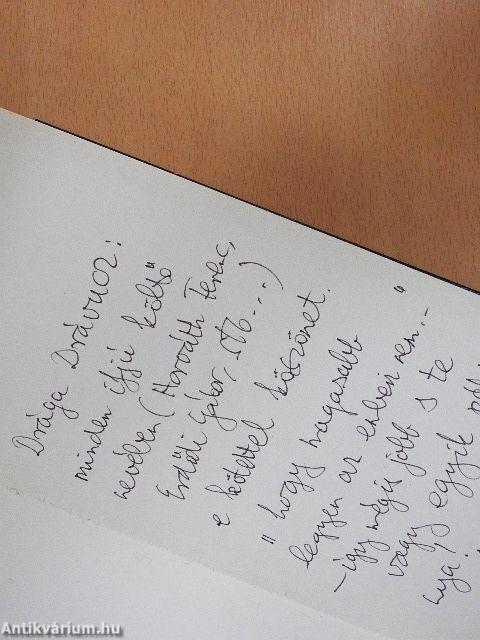 Drága Drávucz:
minden ifjú költő
nevében (Horváth Ferenc,
Erdődi Gábor, stb...)
e kötettel köszönet.
"hogy magasabb
legyen az emberi nem.-"
- így mégis jobb s te
vagy egyik
nya!
Antikvárium.hu